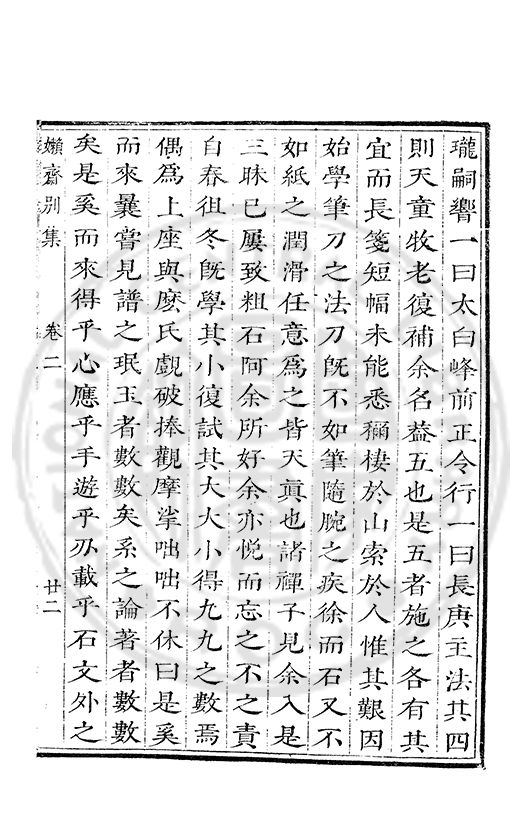 瓏嗣響一曰太白峰前正令行一曰長庚主法其四
則天童牧老復補余名益五也是五者施之各有其
宜而長箋短幅未能悉獮棲於山索於人惟其艱因
始學筆刀之法刀旣不如筆隨腕之疾徐而石又不
如紙之潤滑任意爲之皆天眞也諸禪子見余入是
三昧已屢致粗石阿余所好余亦悅而忘之不之責
自春徂冬旣學其小復試其大大小得九九之數焉
偶爲上座與麽氏覰破捧觀摩挲咄咄不休曰是奚
而來曩嘗見譜之珉玉者數數矣系之論著者數數
矣是奚而來得乎心應乎手遊乎刅載乎石文外之
嬾齋别集
卷二
廿二